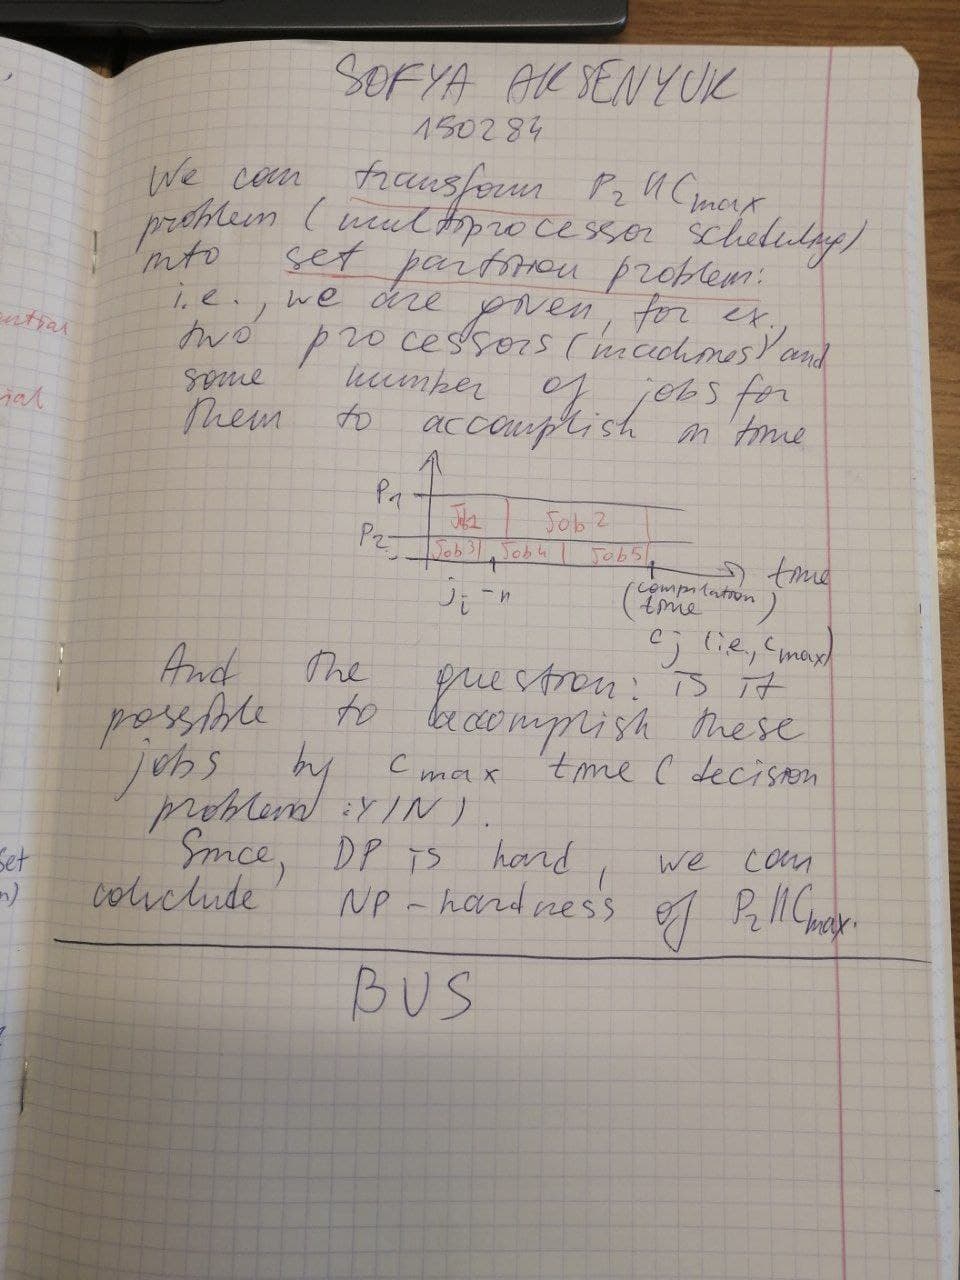 SOFYA AKSENYUK
150284
We can transform P2 || Cmax
problem (multiprocessor scheduling)
into set partition problem:
i.e., we are given, for ex.,
two processors (machines) and
some number of jobs for
them to accomplish in time
P1
Job1 Job 2
P2
Job3 Job4 Job5
time
ji - n
(compilation
time)
cj (i.e., cmax)
And the question: is it
possible to accomplish these
jobs by cmax time (decision
problem : Y/N).
Since, DP is hard, we can
conclude NP-hardness of P2||Cmax.
BUS
ial
set
n)